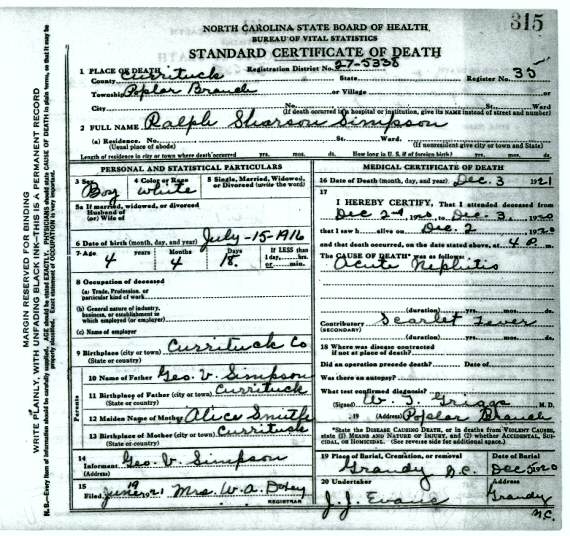 315
NORTH CAROLINA STATE BOARD OF HEALTH
BUREAU OF VITAL STATISTICS
STANDARD CERTIFICATE OF DEATH
1 PLACE OF DEATH Registration District No. 27-5338
County Currituck State Register No. 35
Township Poplar Branch or Village
City No. St. Ward
(If death occurred in a hospital or institution, give its NAME instead of street and number)
2 FULL NAME Ralph Sharson Simpson
(a) Residence. No. St. Ward.
(Usual place of abode) (If nonresident give city or town and State)
Length of residence in city or town where death occurred yrs. mos. ds. How long in U. S., if of foreign birth? yrs. mos. ds.
PERSONAL AND STATISTICAL PARTICULARS
3 Sex Boy
4 Color or Race White
5 Single, Married, Widowed, or Divorced (write the word)
5a If married, widowed, or divorced
Husband of
(or) Wife of
6 Date of birth (month, day, and year) July-15-1916
7 Age 4 years 4 Months Days 18 If LESS than
1 day, hrs.
or min.
8 Occupation of deceased
(a) Trade, Profession, or
particular kind of work
(b) General nature of industry,
business, or establishment in
which employed (or employer)
(c) Name of employer
9 Birthplace (city or town) Currituck Co
(State or country)
Parents
10 Name of Father Geo. V. Simpson
11 Birthplace of Father (city or town) Currituck
(State or country)
12 Maiden Name of Mother Alice Smith
13 Birthplace of Mother (city or town) Currituck
(State or country)
14
Informant Geo. V Simpson
(Address)
15
Filed June 19 1921 Mrs. W. A. Doxey
REGISTRAR
MEDICAL CERTIFICATE OF DEATH
16 Date of Death (month, day, and year) Dec. 3 1921
17
I HEREBY CERTIFY, That I attended deceased from
Dec 2nd 1920 to Dec. 3, 1920
that I saw h alive on Dec. 2 1920
and that death occurred, on the date stated above, at 4 P. m.
The CAUSE OF DEATH* was as follows:
Acute Nephritis
(duration) yrs. mos. ds.
Contributory Scarlet Fever
(SECONDARY)
(duration) yrs. mos. ds.
18 Where was disease contracted
if not at place of death?
Did an operation precede death? Date of
Was there an autopsy?
What test confirmed diagnosis?
(Signed) W. T. Griggs M. D.
19 (Address) Poplar Branch
*State the DISEASE CAUSING DEATH, or in deaths from VIOLENT CAUSES, state (1) MEANS AND NATURE OF INJURY, and (2) whether ACCIDENTAL, SUICIDAL, or HOMICIDAL. (See reverse side for additional space.)
19 Place of Burial, Cremation, or removal Date of Burial
Grandy N.C. Dec 5 1920
20 Undertaker Address
J. J. Evans Grandy
N.C.
MARGIN RESERVED FOR BINDING
WRITE PLAINLY, WITH UNFADING BLACK INK—THIS IS A PERMANENT RECORD
N. B.—Every item of information should be carefully supplied. AGE should be stated EXACTLY. PHYSICIANS should state CAUSE OF DEATH in plain terms, so that it may be properly classified. Exact statement of OCCUPATION is very important.